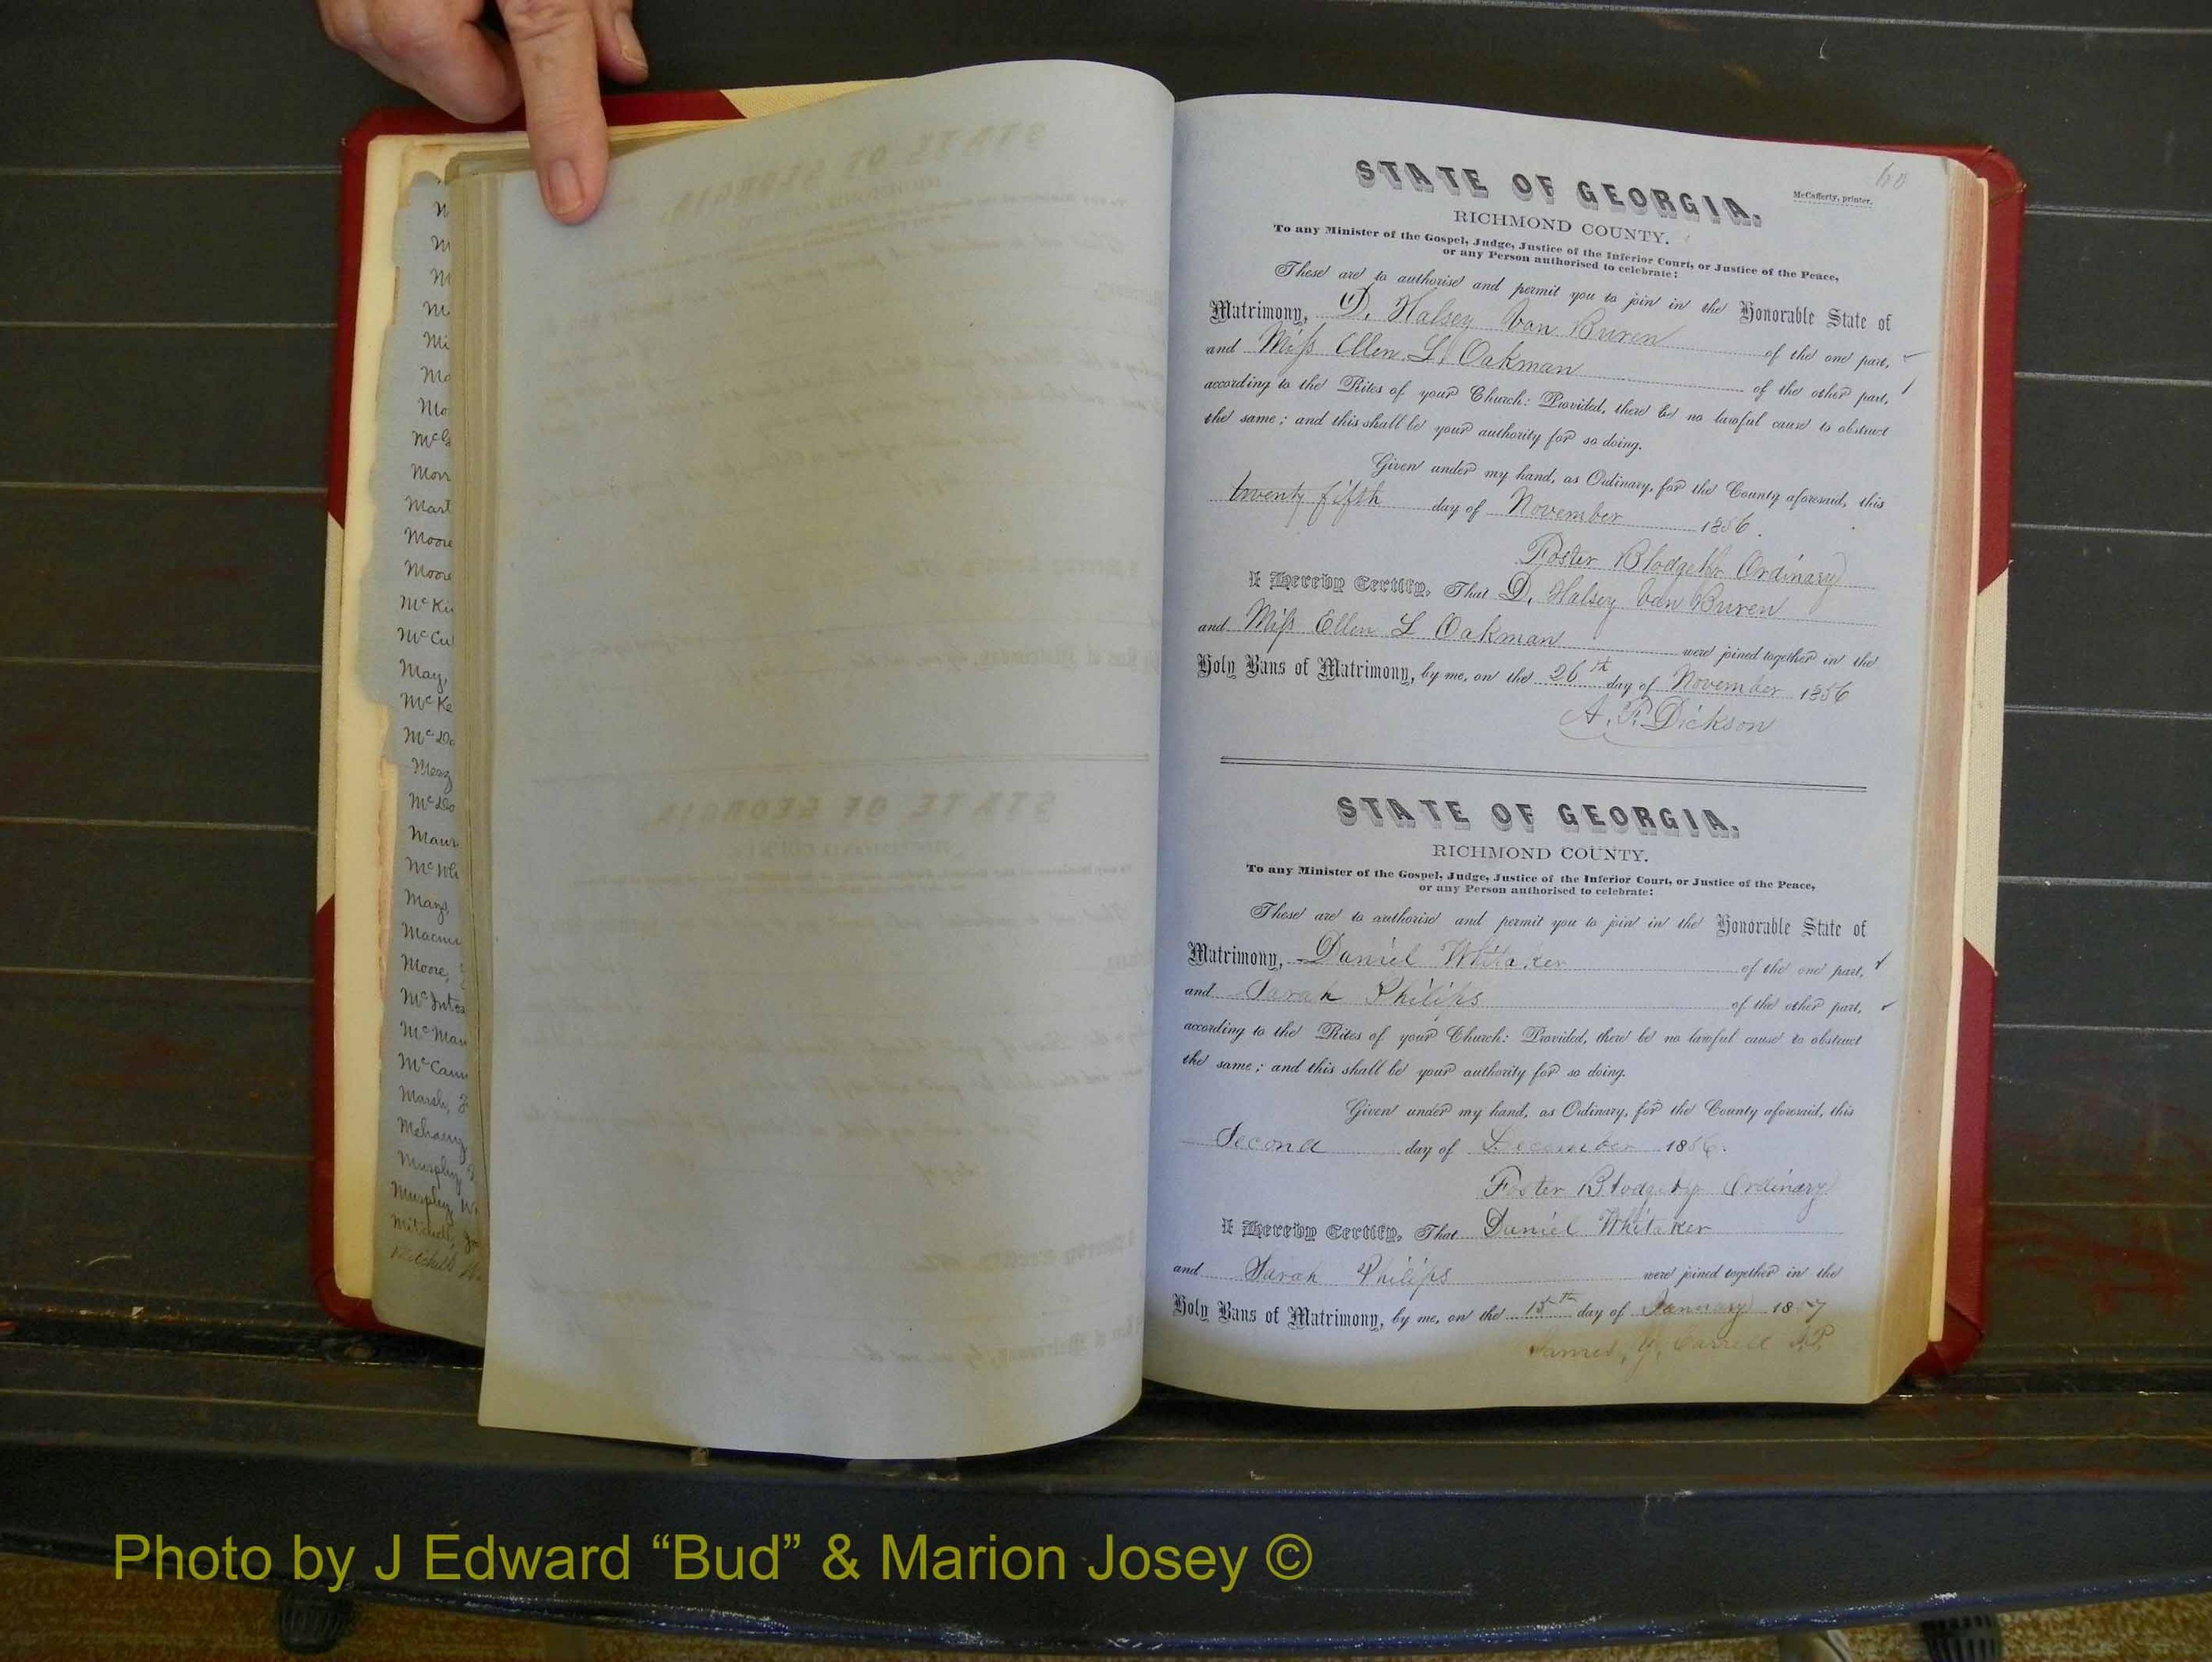 60
McCafferty, printer.
STATE OF GEORGIA.
RICHMOND COUNTY.
To any Minister of the Gospel, Judge, Justice of the Inferior Court, or Justice of the Peace,
or any Person authorised to celebrate:
These are to authorise and permit you to join in the Honorable State of
Matrimony, D. Halsey Van Buren of the one part,
and Miss Ellen L. Oakman of the other part,
according to the Rites of your Church: Provided, there be no lawful cause to obstruct
the same; and this shall be your authority for so doing.
Given under my hand, as Ordinary, for the County aforesaid, this
twenty fifth day of November 1856.
Foster Blodget Jr Ordinary
I Hereby Certify, That D. Halsey Van Buren
and Miss Ellen L Oakman were joined together in the
Holy Bans of Matrimony, by me, on the 26th day of November 1856
A. P. Dickson
STATE OF GEORGIA.
RICHMOND COUNTY.
To any Minister of the Gospel, Judge, Justice of the Inferior Court, or Justice of the Peace,
or any Person authorised to celebrate:
These are to authorise and permit you to join in the Honorable State of
Matrimony, Daniel Whitaker of the one part,
and Sarah Philips of the other part,
according to the Rites of your Church: Provided, there be no lawful cause to obstruct
the same; and this shall be your authority for so doing.
Given under my hand, as Ordinary, for the County aforesaid, this
Second day of December 1856.
Foster Blodget Jr Ordinary
I Hereby Certify, That Daniel Whitaker
and Sarah Philips were joined together in the
Holy Bans of Matrimony, by me, on the 15th day of January 1857
James
Photo by J Edward “Bud” & Marion Josey ©